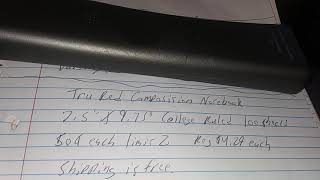 Tru Red Composition Notebook
7.5" X 9.75" College Ruled 100 sheets
50¢ each limit 2 Reg $4.29 each
Shipping is free